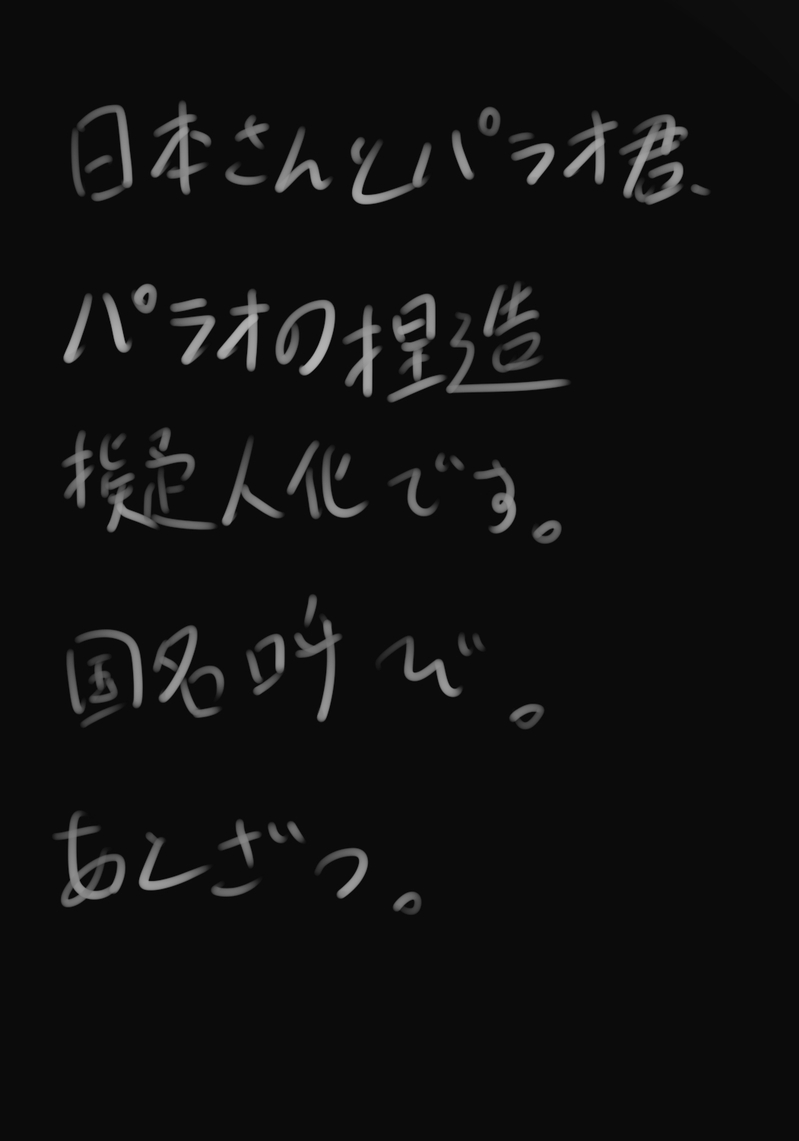 日本さんとパラオ君、
パラオの捏造
擬人化です。
国名呼び。
あとざつ。